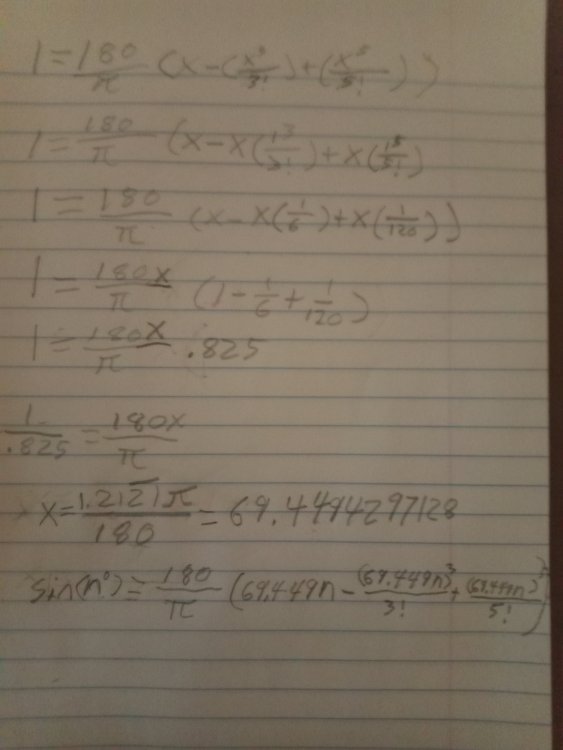 1 = 180/π (x - (x³/3!) + (x⁵/5!))
1 = 180/π (x - x(1³/3!) + x(1⁵/5!))
1 = 180/π (x - x(1/6) + x(1/120))
1 = 180x/π (1 - 1/6 + 1/120)
1 = 180x/π .825
1/.825 = 180x/π
x = 1.2121π/180 = 69.4494297128
sin(n°) = 180/π (69.449n - (69.449n)³/3! + (69.449n)⁵/5!)